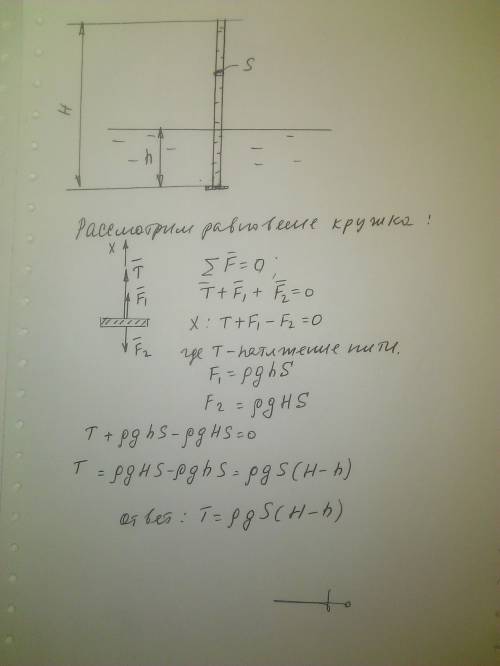 H
S
h
Рассмотрим равновесие кружка:
X
T̅
F̅₁
F̅₂
∑F̅=0;
T̅+F̅₁+F̅₂=0
X: T+F₁-F₂=0
где T-натяжение нити.
F₁=ρghS
F₂=ρgHS
T+ρghS-ρgHS=0
T=ρgHS-ρghS=ρgS(H-h)
ответ: T=ρgS(H-h)